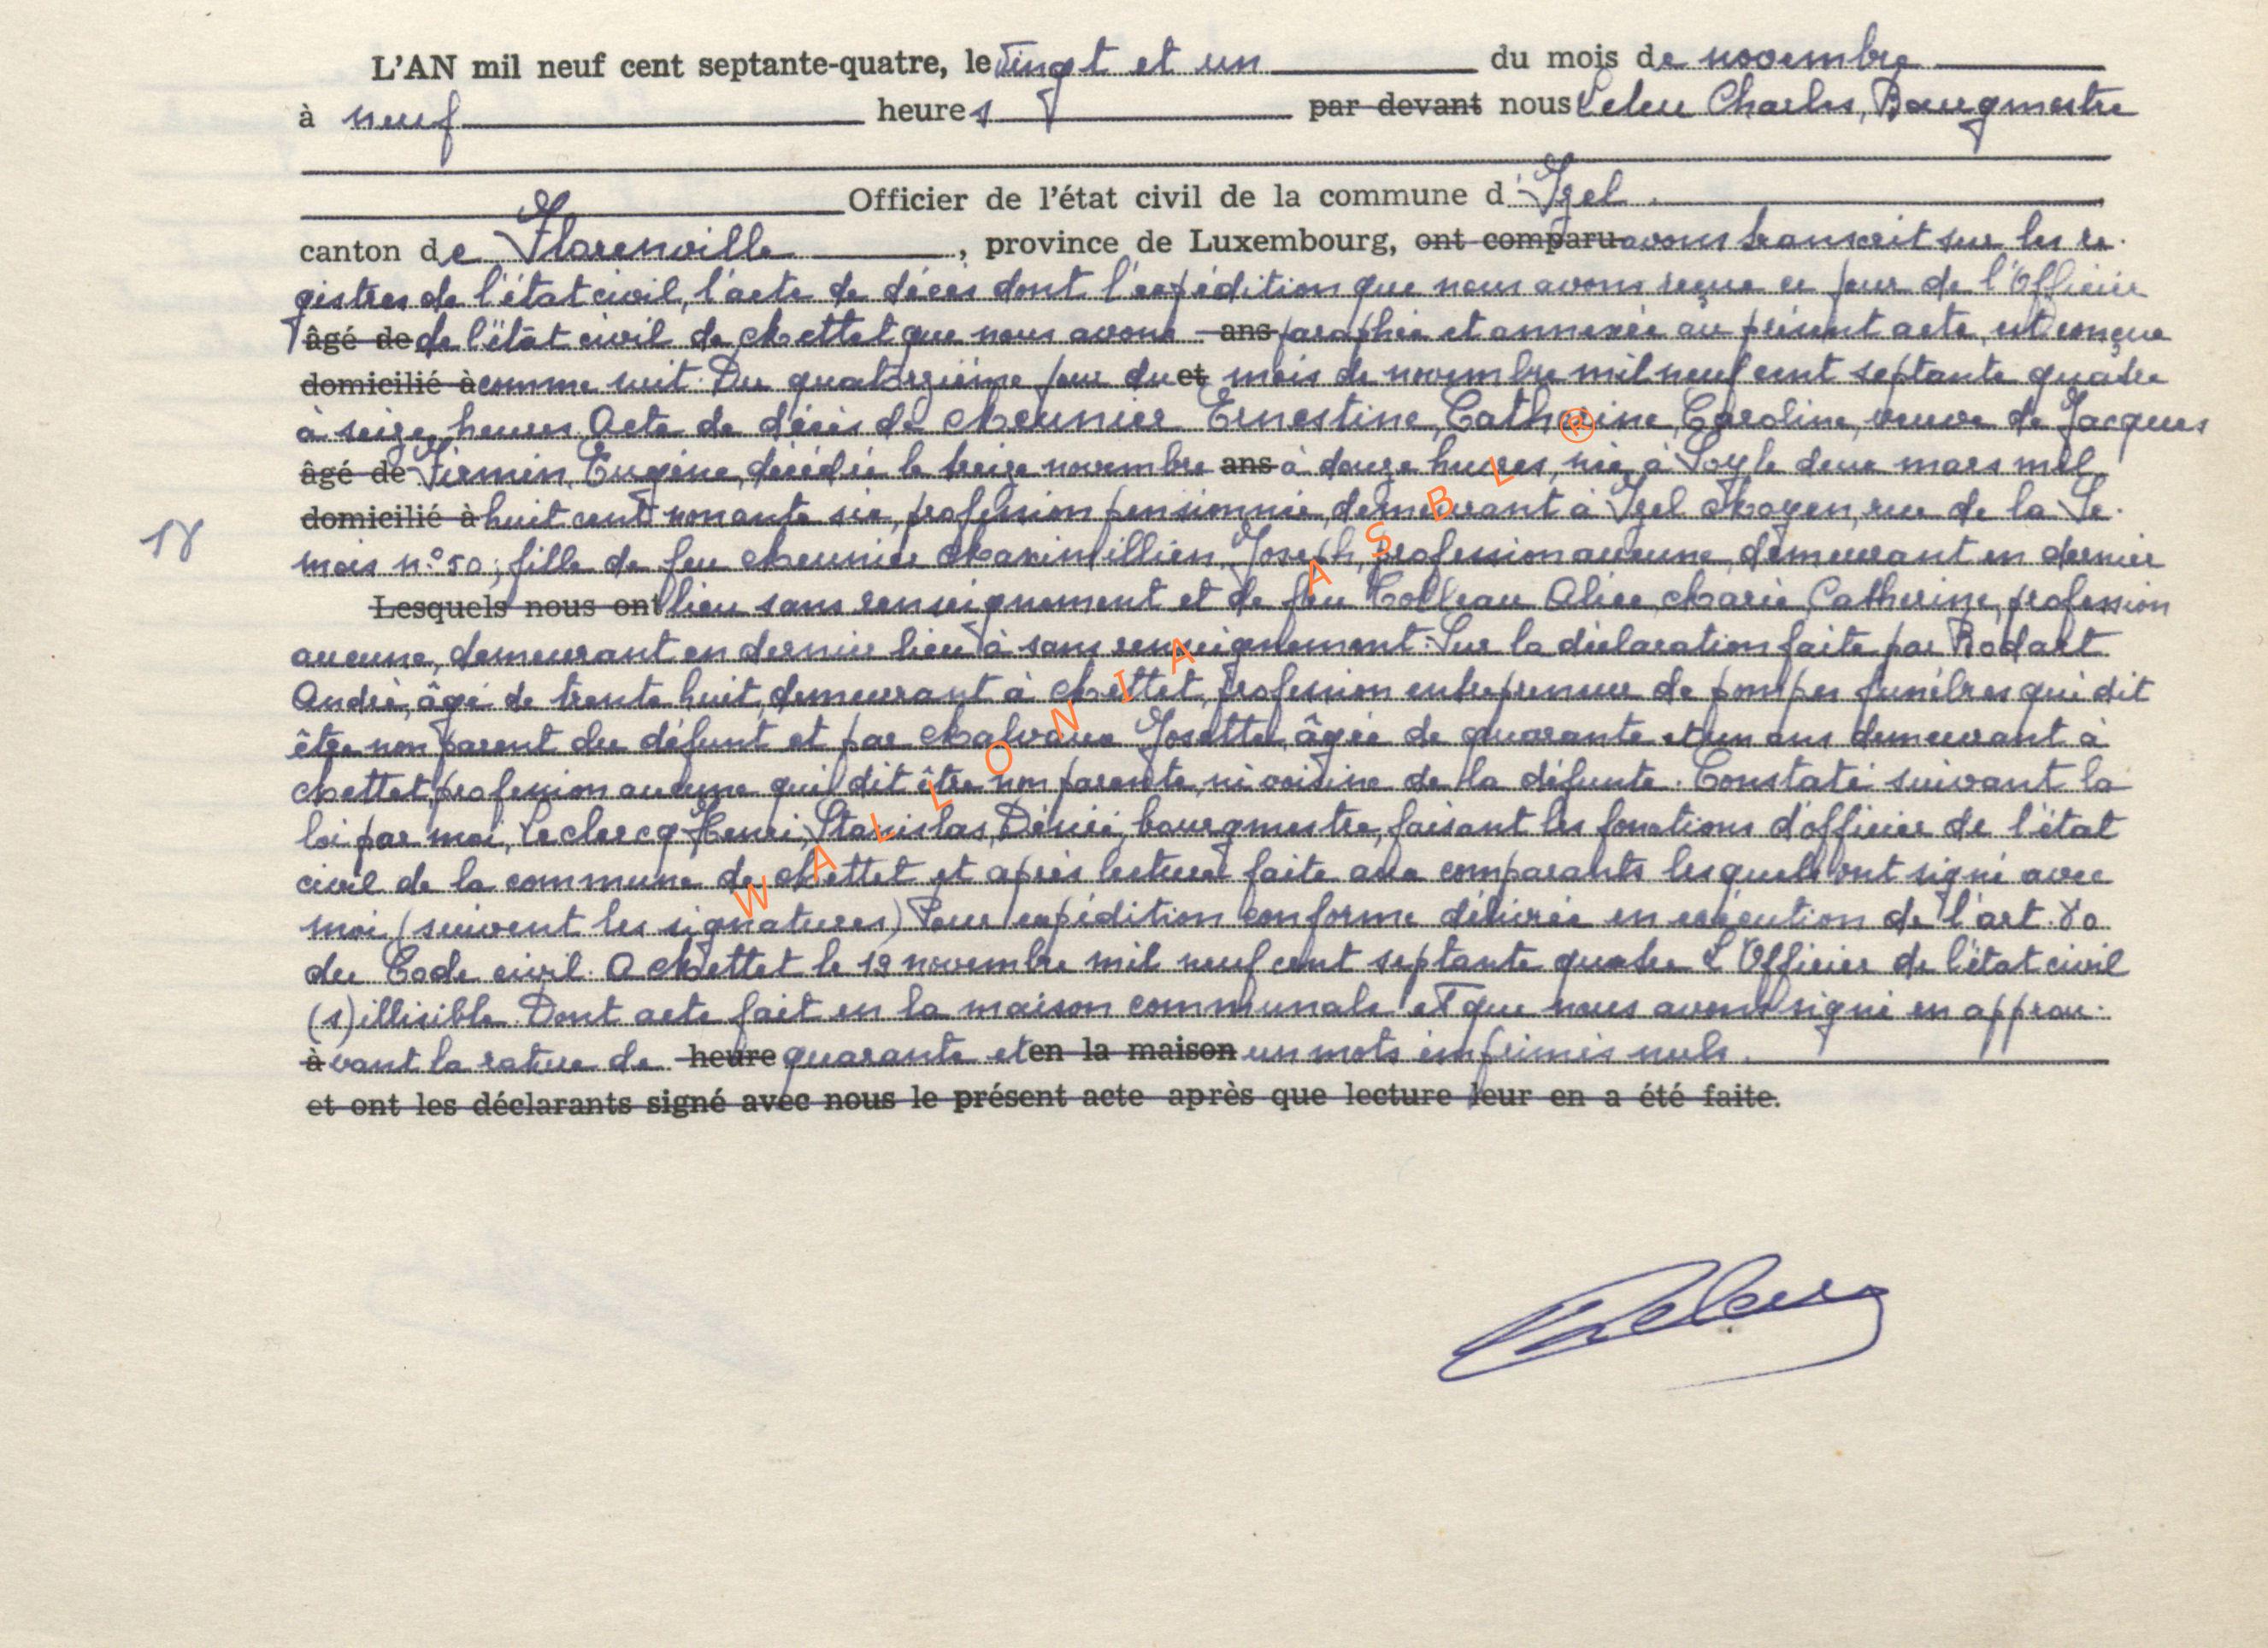 L'AN mil neuf cent septante-quatre, le vingt et un du mois de novembre
à neuf heures par devant nous Leleu Charles, Bourgmestre
Officier de l'état civil de la commune d'Izel.
canton de Florenville, province de Luxembourg, ont comparu avons transcrit sur les re-
gistres de l'état civil, l'acte de décès dont l'expédition que nous avons reçue ce jour de l'Officier
âgé de de l'état civil de Mettet que nous avons ans paraphée et annexée au présent acte, est conçue
domicilié à comme suit: Du quatorzième jour du et mois de novembre mil neuf cent septante quatre
à seize heures. Acte de décès de Meunier Ernestine, Catherine, Caroline, veuve de Jacques
âgé de Firmin, Eugène, décédée le treize novembre ans à douze heures, née à Soy le deux mars mil
domicilié à huit cent nonante six, profession pensionnée, demeurant à Izel Moyen, rue de la Se-
18
mois n° 50; fille de feu Meunier Maximillien, Joseph, profession aucune, demeurant en dernier
Lesquels nous ont lieu sans renseignement et de feu Colleau Alice, Marie, Catherine, profession
aucune, demeurant en dernier lieu à sans renseignement. Sur la déclaration faite par Rodart
André, âgé de trente huit, demeurant à Mettet, profession entrepreneur de pompes funèbres qui dit
être non parent du défunt et par Malvaux Josette, âgée de quarante et un ans demeurant à
Mettet, profession aucune qui dit être non parente, ni voisine de la défunte. Constaté suivant la
loi par moi, Leclercq Henri, Stanislas, Désiré, bourgmestre, faisant les fonctions d'officier de l'état
civil de la commune de Mettet et après lecture faite aux comparants lesquels ont signé avec
moi (suivent les signatures) Pour expédition conforme délivrée en exécution de l'art. 80
du Code civil. A Mettet le 19 novembre mil neuf cent septante quatre L'Officier de l'état civil
(s) illisible. Dont acte fait en la maison communale et que nous avons signé en approu-
à vant la rature de heure quarante et en la maison un mots imprimés nuls.
et ont les déclarants signé avec nous le présent acte après que lecture leur en a été faite.
Leleu
WALLONIA ASBL ®